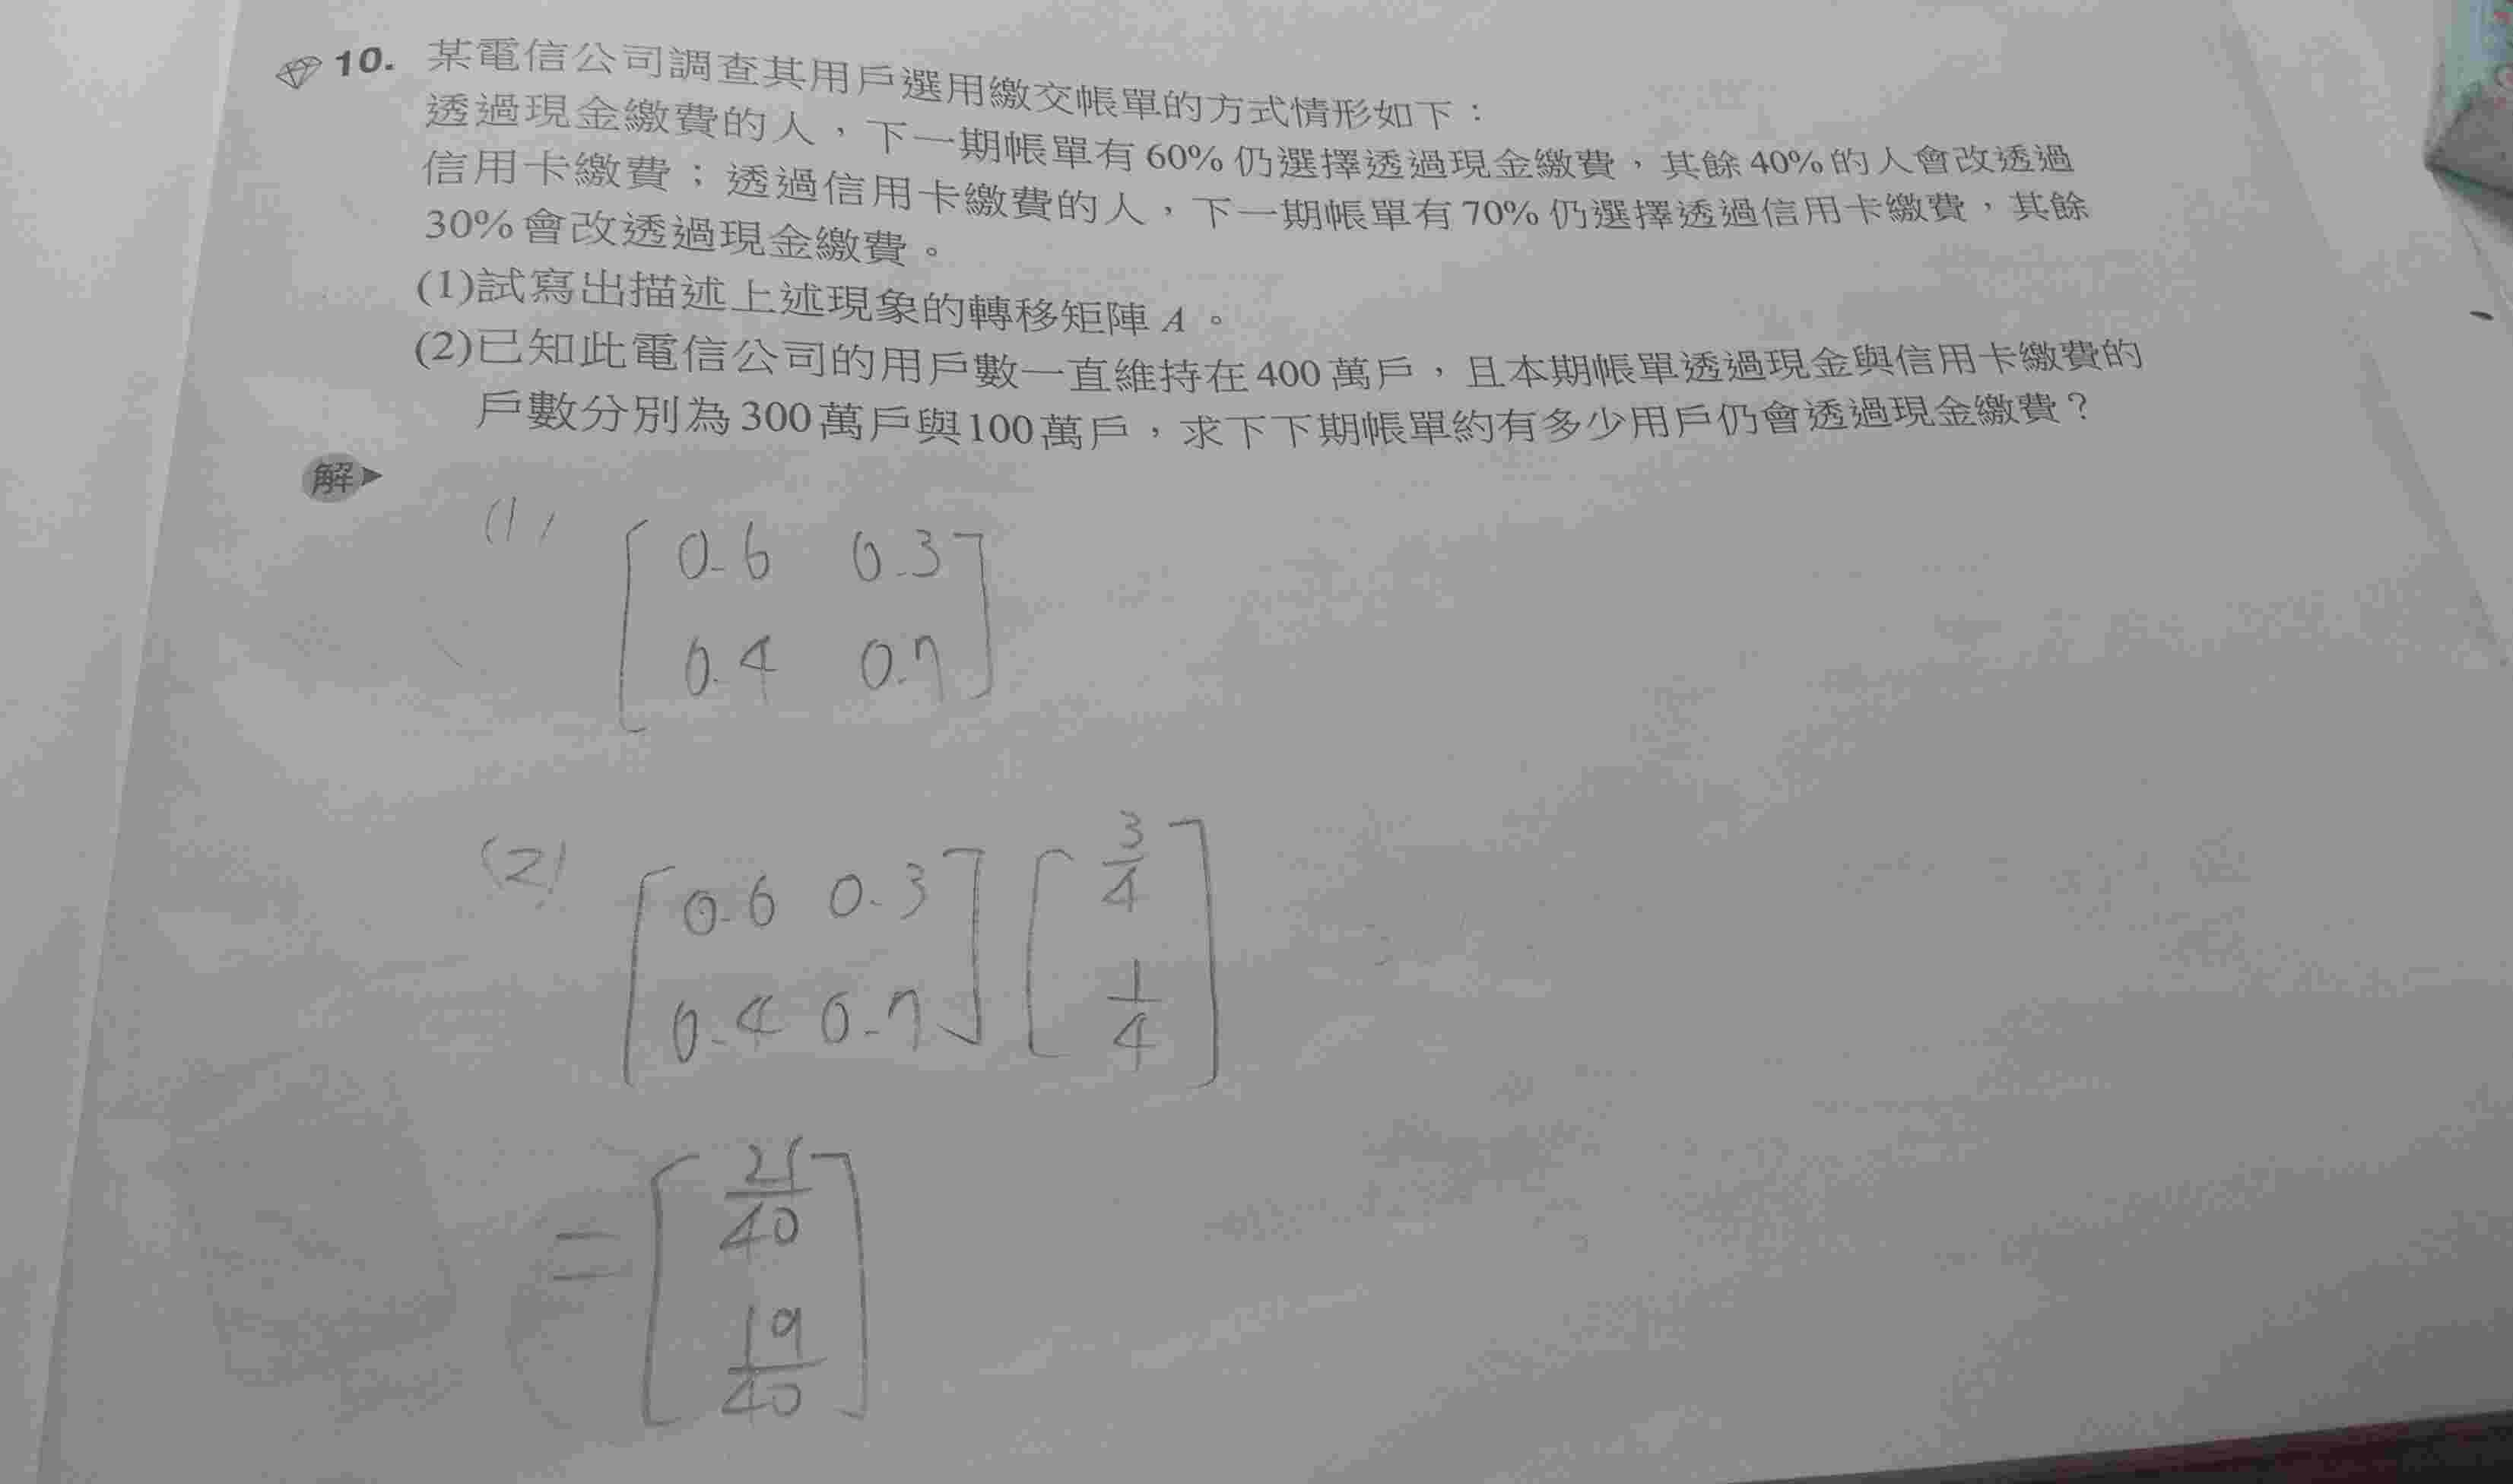 10. 某電信公司調查其用戶選用繳交帳單的方式情形如下：
透過現金繳費的人，下一期帳單有60%仍選擇透過現金繳費，其餘40%的人會改透過
信用卡繳費；透過信用卡繳費的人，下一期帳單有70%仍選擇透過信用卡繳費，其餘
30%會改透過現金繳費。
(1)試寫出描述上述現象的轉移矩陣A。
(2)已知此電信公司的用戶數一直維持在400萬戶，且本期帳單透過現金與信用卡繳費的
戶數分別為300萬戶與100萬戶，求下下期帳單約有多少用戶仍會透過現金繳費？
解
(1) [0.6 0.3
0.4 0.7]
(2) [0.6 0.3
0.4 0.7] [3/4
1/4]
= [21/40
19/40]